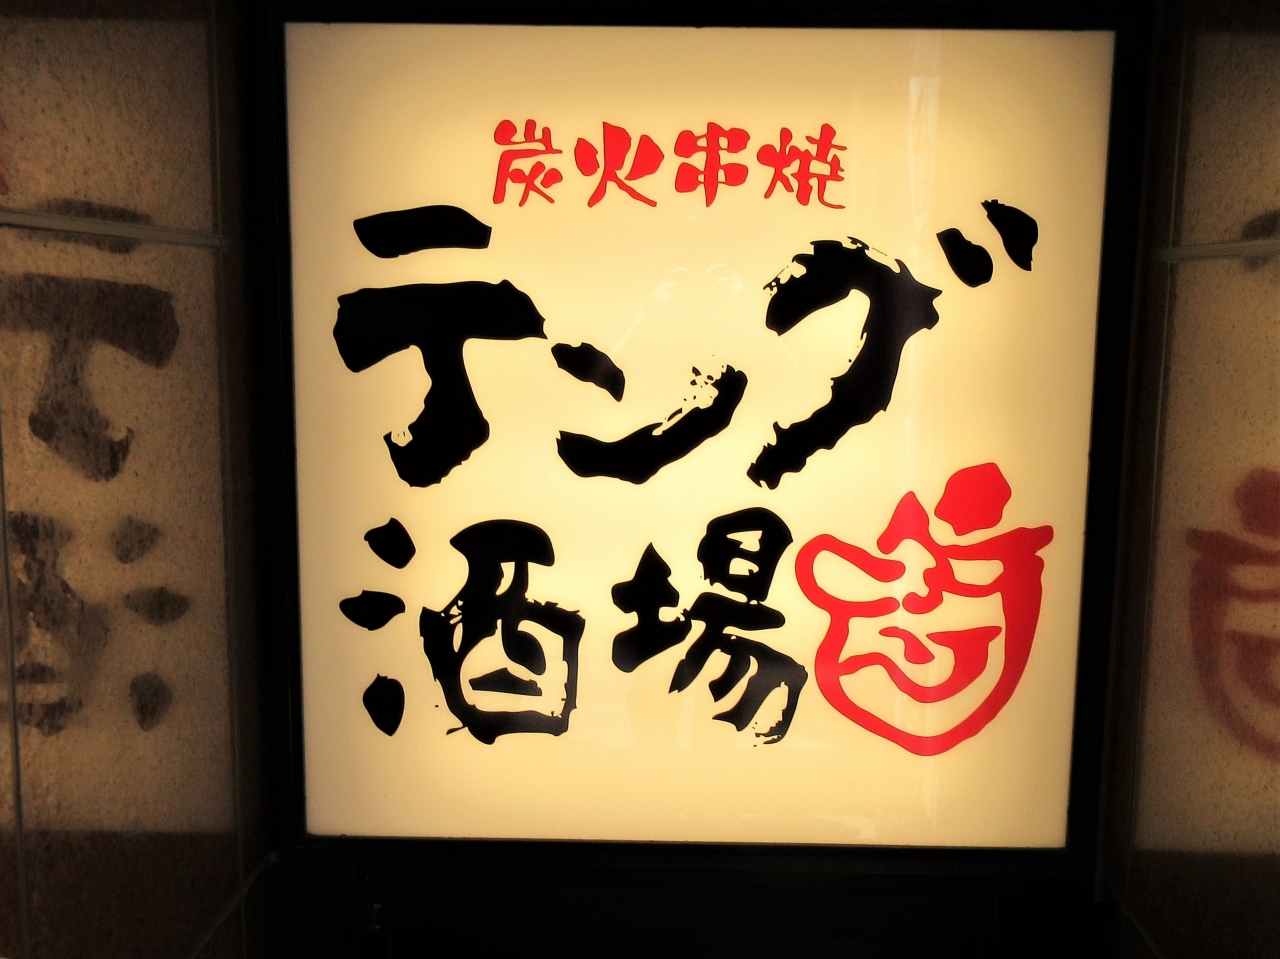 炭火串焼
テング
酒場